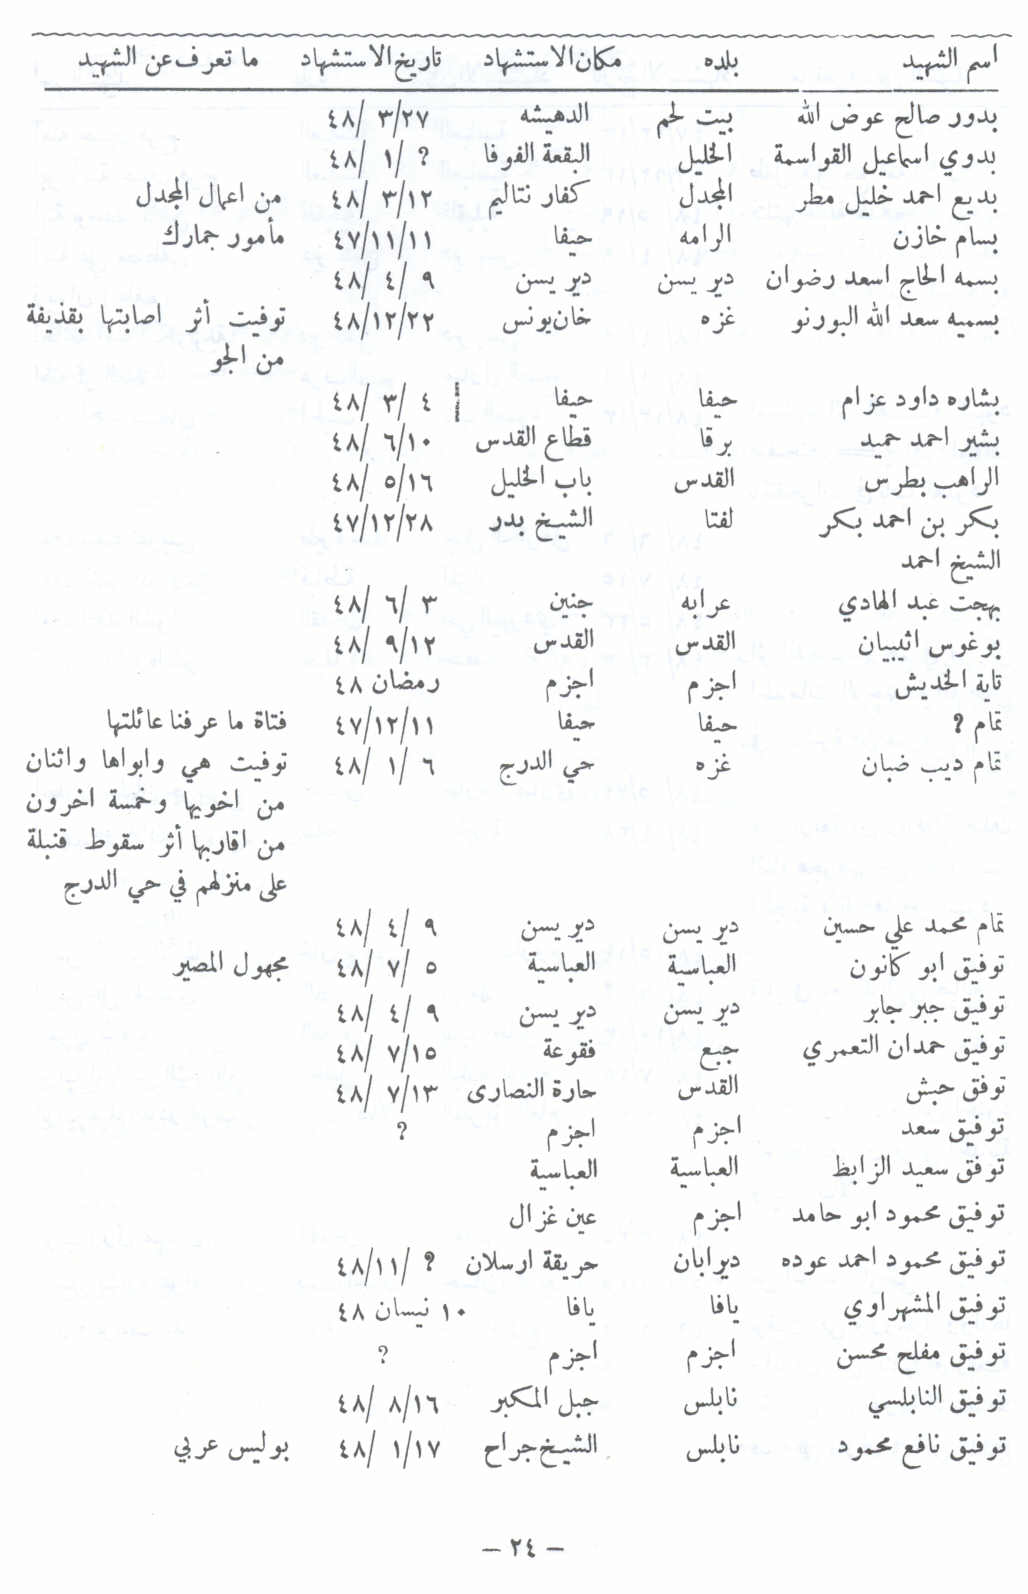 اسم الشهيد بلده مكان الاستشهاد تاريخ الاستشهاد ما تعرف عن الشهيد
بدور صالح عوض الله بيت لحم الدهيشه ٤٨/ ٣/٢٧
بدوي اسماعيل القواسمة الخليل البقعة الفوقا ? /١ /٤٨
بديع احمد خليل مطر المجدل كفار نتاليم ٤٨/ ٣/١٢ من اعمال المجدل
بسام خازن الرامه حيفا ٤٧/١١/١١ مأمور جمارك
بسمه الحاج اسعد رضوان دير يسن دير يسن ٩ /٤ /٤٨
بسميه سعد الله البورنو غزه خان يونس ٤٨/١٢/٢٢ توفيت أثر اصابتها بقذيفة
من الجو
بشاره داود عزام حيفا حيفا ٤ /٣ /٤٨
بشير احمد حميد برقا قطاع القدس ٤٨/ ٦/١٠
الراهب بطرس القدس باب الخليل ٤٨/ ٥/١٦
بكر بن احمد بكر لفتا الشيخ بدر ٤٧/١٢/٢٨
الشيخ احمد
بهجت عبد الهادي عرابه جنين ٣ /٦ /٤٨
بوغوس اثييبيان القدس القدس ٤٨/ ٩/١٢
تاية الخديش اجزم اجزم رمضان ٤٨
تمام ? حيفا حيفا ٤٧/١٢/١١ فتاة ما عرفنا عائلتها
تمام ديب ضبان غزه حي الدرج ٦ /١ /٤٨ توفيت هي وابواها واثنان
من اخويها وخمسة اخرون
من اقاربها أثر سقوط قنبلة
على منزلهم في حي الدرج
تمام محمد علي حسين دير يسن دير يسن ٩ /٤ /٤٨
توفيق ابو كانون العباسية العباسية ٥ /٧ /٤٨ مجهول المصير
توفيق جبر جابر دير يسن دير يسن ٩ /٤ /٤٨
توفيق حمدان التعمري جبع فقوعة ٤٨/ ٧/١٥
توفق حبش القدس حارة النصارى ٤٨/ ٧/١٣
توفيق سعد اجزم اجزم ?
توفق سعيد الزابظ العباسية العباسية
توفيق محمود ابو حامد اجزم عين غزال
توفيق محمود احمد عوده ديرابان حريقة ارسلان ? /٤٨/١١
توفيق المشهراوي يافا يافا ١٠ نيسان ٤٨
توفيق مفلح محسن اجزم اجزم ?
توفيق النابلسي نابلس جبل المكبر ٤٨/ ٨/١٦
توفيق نافع محمود نابلس الشيخ جراح ٤٨/ ١/١٧ بوليس عربي
— ٢٤ —